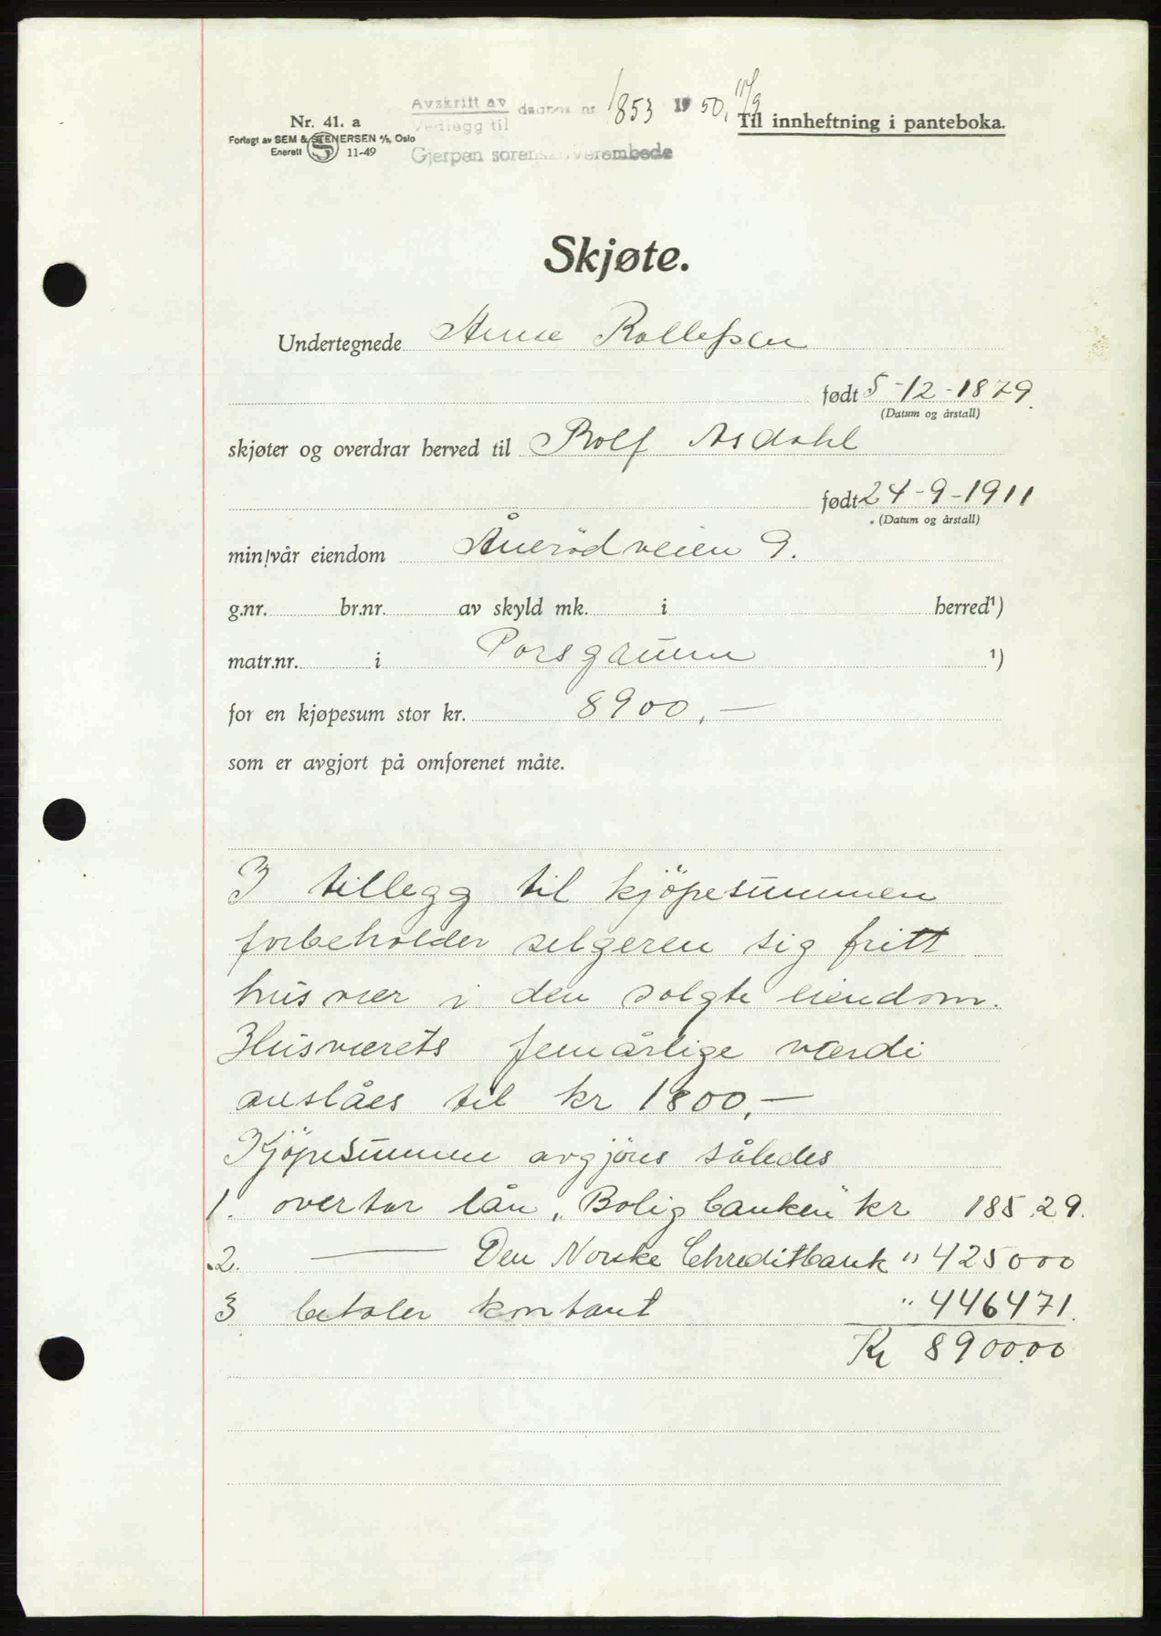 Avskrift av
Vedlegg til
dagbok nr. 1853 1950, 11/9
Gjerpen sorenskriverembede
Nr. 41. a
Forlagt av SEM & STENERSEN A/S, Oslo
Enerett 11-49
Til innheftning i panteboka.
Skjøte.
Undertegnede Anne Rollefsen
født 5-12-1879.
(Datum og årstall)
skjøter og overdrar herved til Rolf Asdahl
født 24-9-1911
(Datum og årstall)
min/vår eiendom Ånerødveien 9.
g.nr. br.nr. av skyld mk. i herred¹)
matr.nr. i Porsgaunn ¹)
for en kjøpesum stor kr. 8900,-
som er avgjort på omforenet måte.
I tillegg til kjöpesummen
forbeholder selgeren sig fritt
husvær i den solgte eiendom.
Husværets femårlige værdi
anslåes til kr 1800,-
Kjöpesummen avgjöres således
1. overtar lån „Boligbanken" kr 185.29.
2. —— Den Norske Chreditbank " 425000
3 betaler kontant " 446471.
Kr 890000